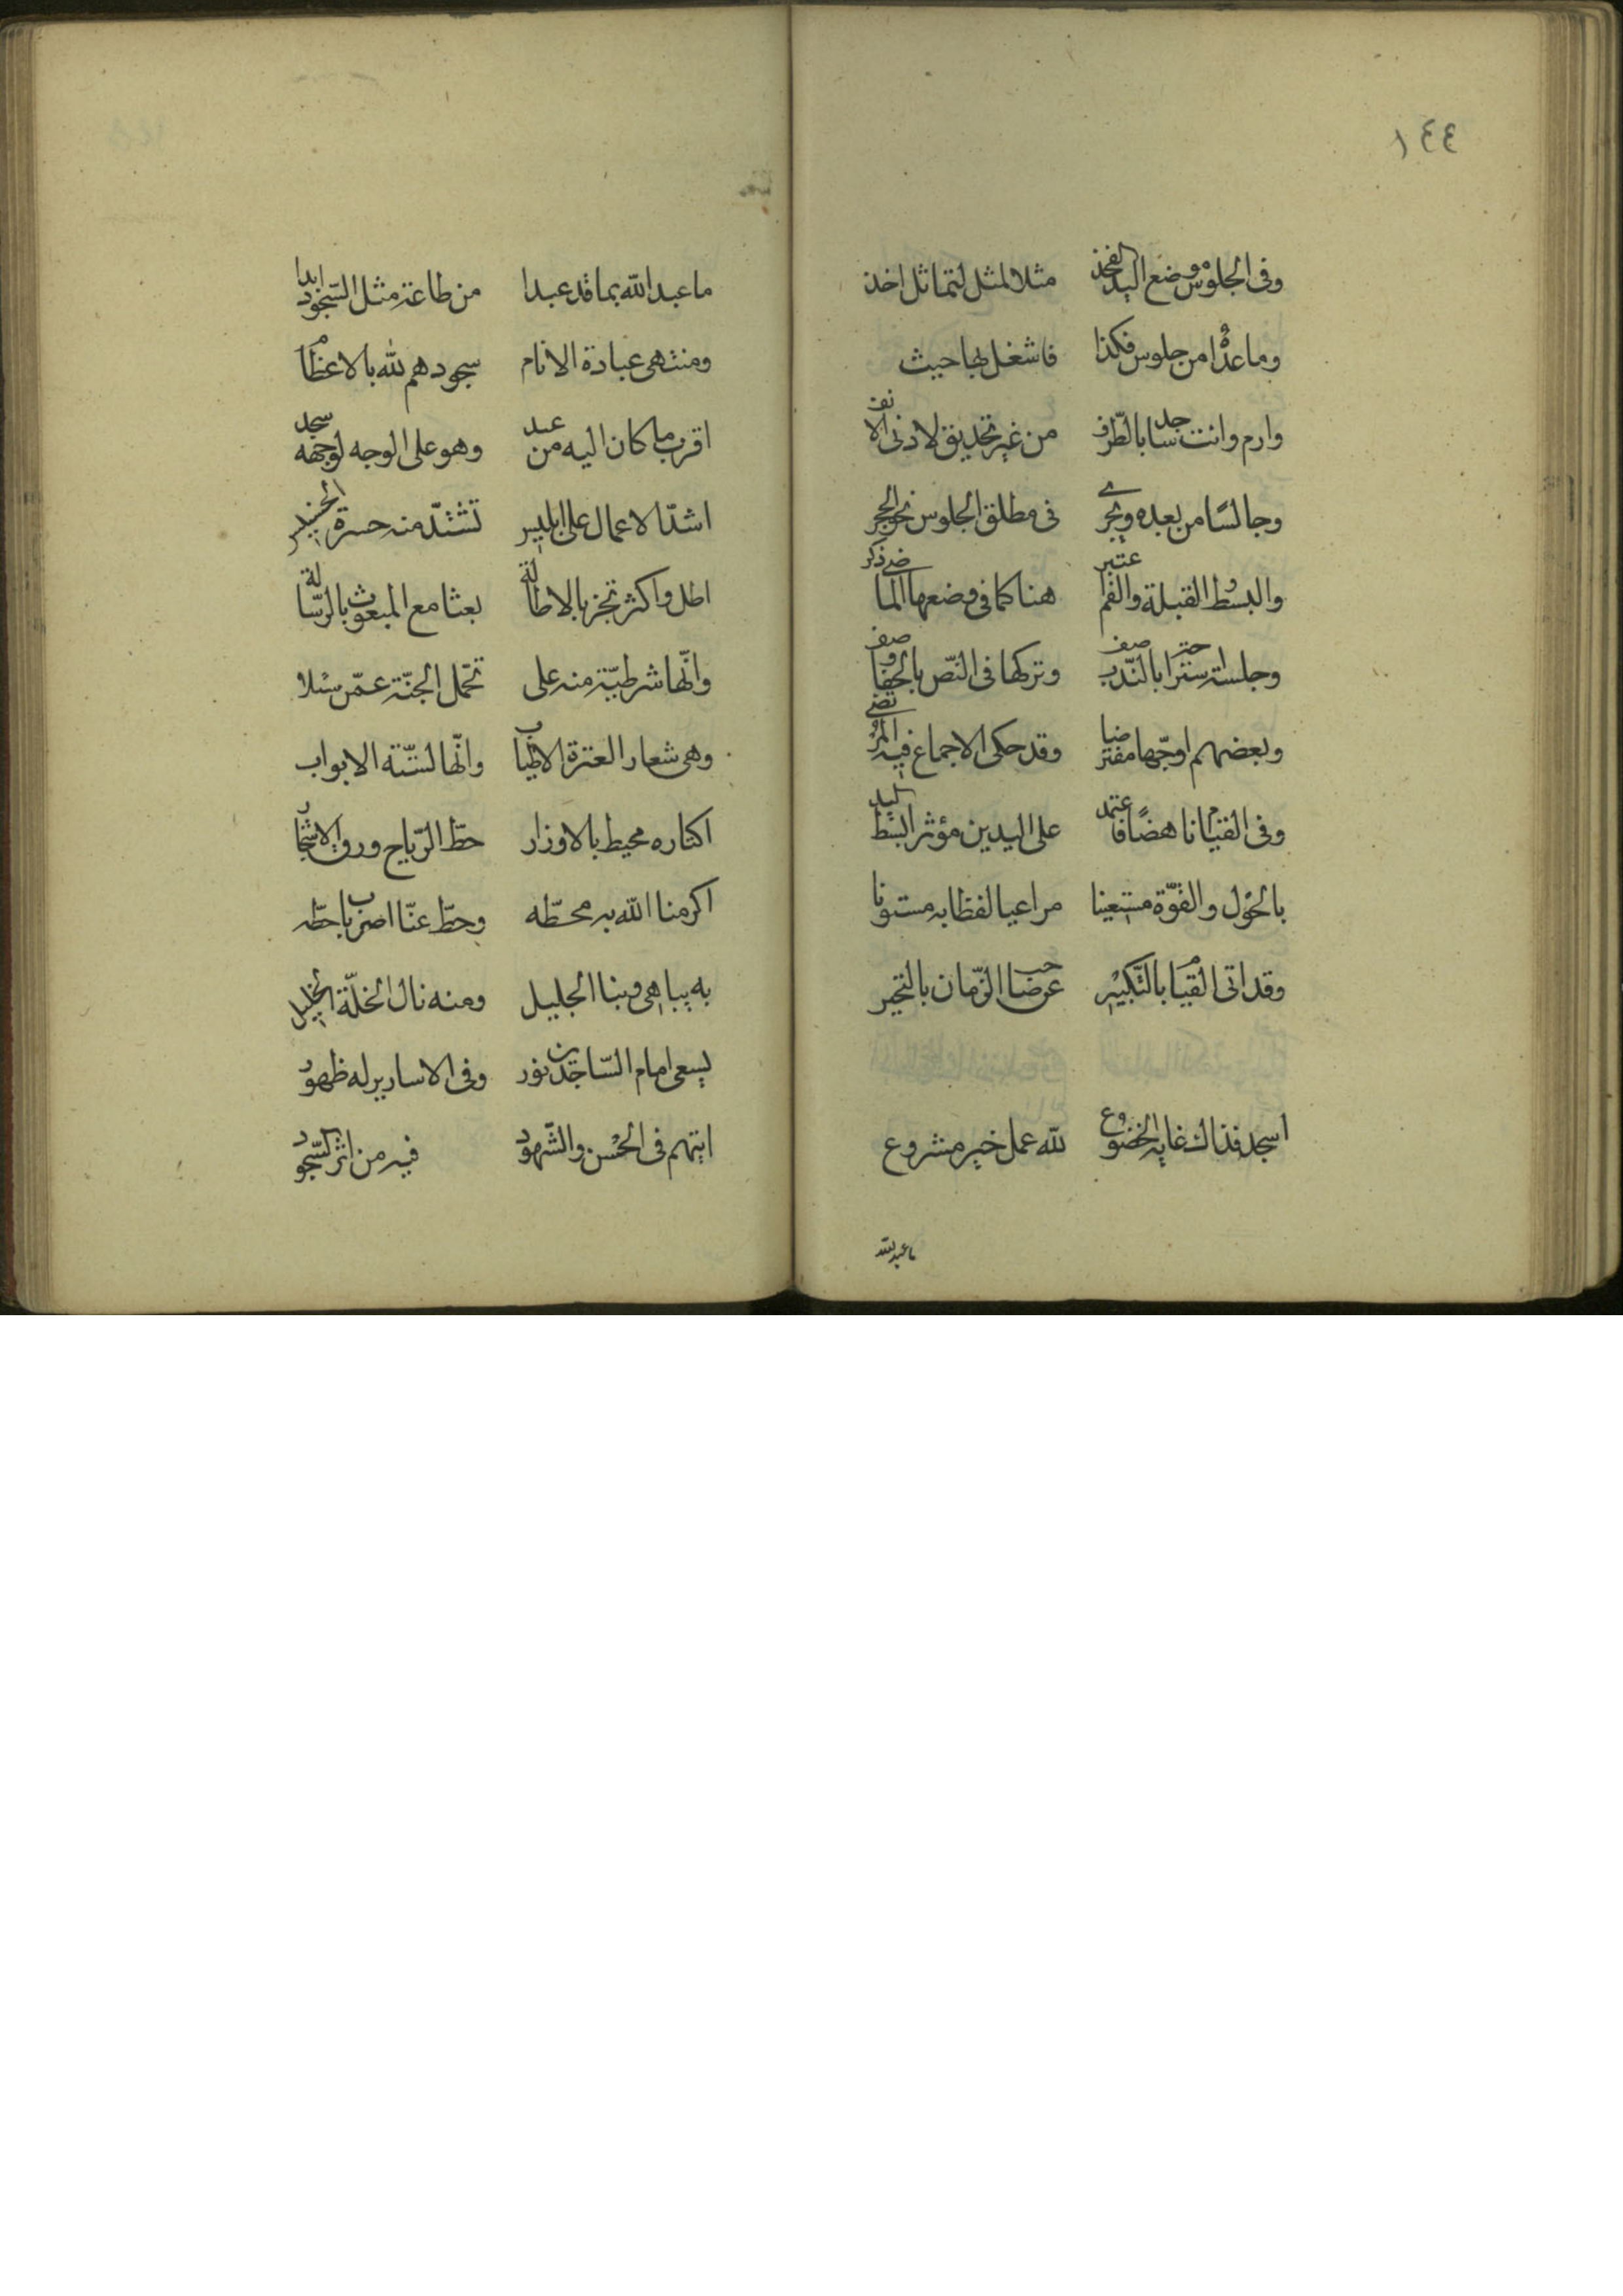 ١٤٤
وفى الجلوس وضع اليد الفخذ مثلا لمثل لتماثل اخذ
وما عدا من جلوس فكذا فاشغل بها حيث
وارم وانت ساجد بالطّرف من غير تحديق لادنى الانف
وجالسًا من بعده ويجرى فى مطلق الجلوس نحو الحجر
والبسط القبلة والضم هنا كما فى وضعها الماضى ذكر
وجلسة بالنّدب وتركها فى النّص بالجفا وصف
وبعضهم اوجبها مفترضا وقد حكى الاجماع فيه المرتضى
وفى القيام ناهضًا فاعتمد على اليدين مؤثر البسط ليد
بالحول والقوّة مستعينا مراعيا لفظا به مسنونا
وقد اتى القيام بالتّكبير عن صاحب الزّمان بالتخيير
اسجد فذاك غاية الخضوع لله عمل خير مشروع
ما عبد الله
ما عبد الله بما قد عبدا من طاعة مثل السّجود ابدا
ومنتهى عبادة الانام سجودهم لله بالاعظام
اقرب ما كان اليه من عبد وهو على الوجه لوجهه سجد
اشدّ الاعمال على ابليس تشتدّ منه حسرة الخسيس
اطل واكثر تجز بالاطالة بعثا مع المبعوث بالرّسالة
وانّها شرطيّة منه على تحمّل الجنّة عمّن سئلا
وهى شعار العترة الاطياب وانّها لسّنة الابواب
اكثاره محيط بالاوزار حطّ الرّياح ورق الاشجار
اكرمنا الله به محطّه وحطّ عنّا اصر باب حطّه
به يباهى ربنا الجليل ومنه نال الخلّة الخليل
يسعى امام السّاجدين نور وفى الاسارير له ظهور
ايتهم فى الحسن والشّهود فيه من اثر السّجود